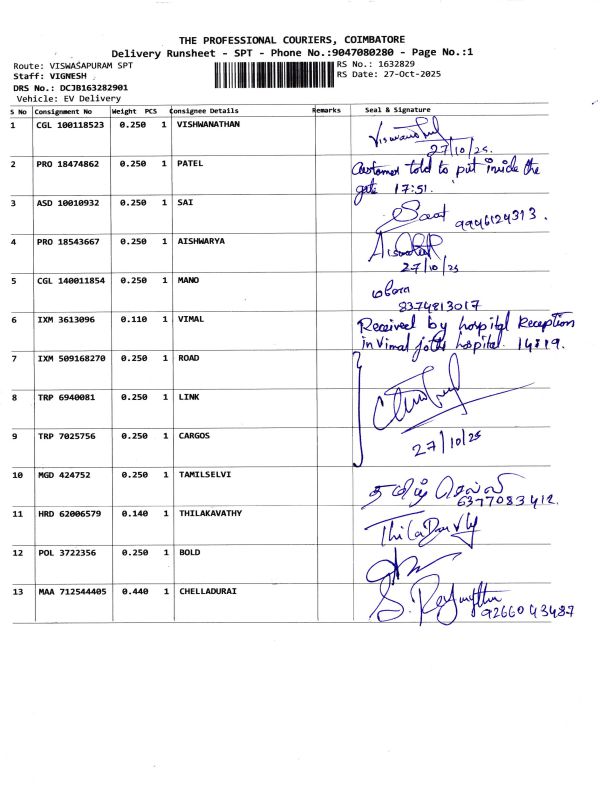 THE PROFESSIONAL COURIERS, COIMBATORE
Delivery Runsheet - SPT - Phone No.:9047080280 - Page No.:1
Route: VISWASAPURAM SPT
Staff: VIGNESH
DRS No.: DCJB163282901
Vehicle: EV Delivery
RS No.: 1632829
RS Date: 27-Oct-2025
S No Consignment No Weight PCS Consignee Details Remarks Seal & Signature
1 CGL 100118523 0.250 1 VISHWANATHAN
27/10/25.
2 PRO 18474862 0.250 1 PATEL Customer told to put inside the
gate 17:51.
3 ASD 10010932 0.250 1 SAI
9946124313.
4 PRO 18543667 0.250 1 AISHWARYA
27/10/25
5 CGL 140011854 0.250 1 MANO
8374813017
6 IXM 3613096 0.110 1 VIMAL Received by hospital Reception
in Vimal hospital.
7 IXM 509168270 0.250 1 ROAD
8 TRP 6940081 0.250 1 LINK
9 TRP 7025756 0.250 1 CARGOS
27/10/25
10 MGD 424752 0.250 1 TAMILSELVI
6377083412.
11 HRD 62006579 0.140 1 THILAKAVATHY
12 POL 3722356 0.250 1 BOLD
13 MAA 712544405 0.440 1 CHELLADURAI
9266043487